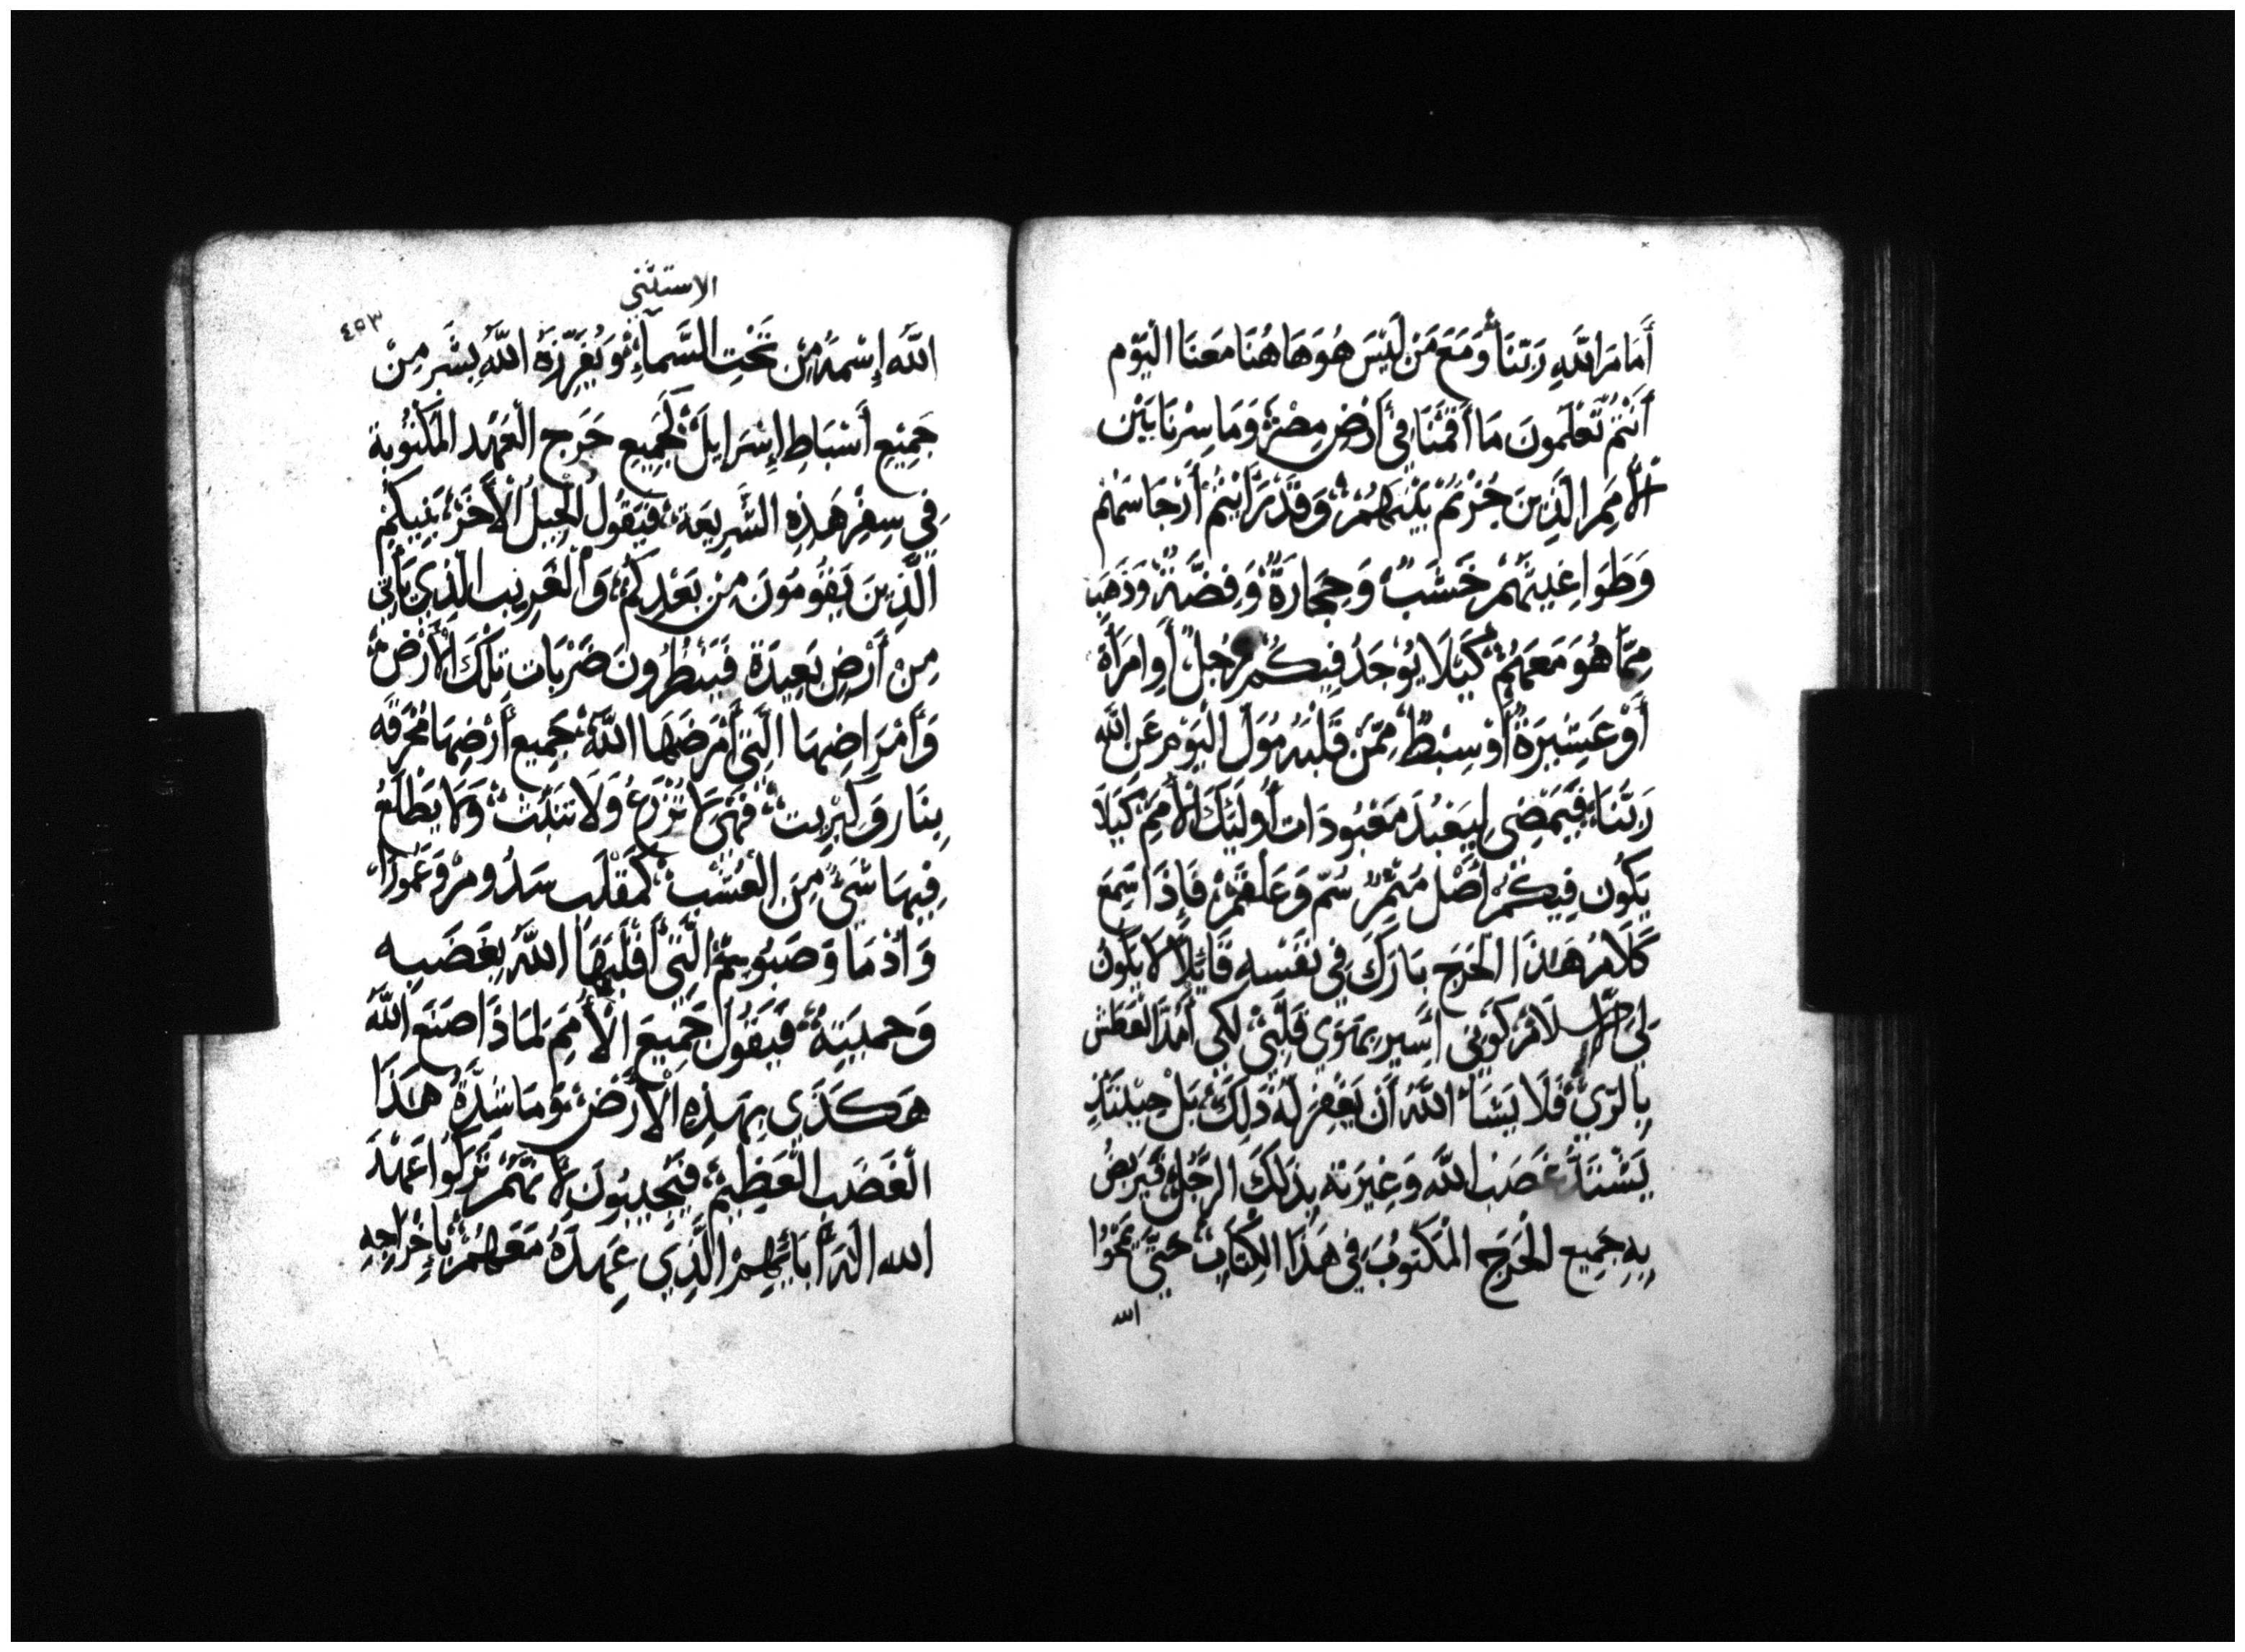 أَمَامَ اللَّهِ رَبَّنَا وَمَعَ مَن لَيْسَ هُوَ هَاهُنَا مَعَنَا الْيَوْم
أَنْتُم تَعْلَمُونَ مَا أَقَمْنَا فِي أَرْضِ مِصْرَ وَمَا سِرْنَا بَيْن
الأُمَمِ الَّذِينَ جُزْتُمْ بَيْنَهُمْ وَقَدْ رَأَيْتُمْ أَرْجَاسَهُمْ
وَطَوَاغِيتَهُمْ خَشَبٌ وَحِجَارَةٌ وَفِضَّةٌ وَذَهَب
مِمَّا هُوَ مَعَهُمْ كَيْلَا يُوْجَدُ فِيكُمْ رَجُلٌ أَو امْرَأَة
أَوْ عَشِيرَةٌ أَوْ سِبْطٌ مِمَّنْ قَلْبَهُ مُوَلّ الْيَوْمَ عَنِ اللَّه
رَبَّنَا فَيَمْضِي لِيَعْبُدَ مَعْبُودَات أُولَئِكَ الْأُمَمِ كَيَلَا
يَكُون فِيكُمْ أَصْل مُثْمِرٌ سُمّ وَعَلْقَمْ فَإِذَا سَمِعَ
كَلَامَ هَذَا الْحَرَج بَارَكَ فِي نَفْسِهِ قَائِلًا لَا يَكُون
لِي سَلَامٌ كَوْنِي أَسِير بِهَوَى قَلْبِي لِكَي الْعَطَش
بِالرّيِّ فَلَا يَشَاءُ اللَّه أَن يَغْفِرَ لَهُ ذَلِكَ بَل حِيْنَئِذٍ
يَشْتَدّ غَضَب اللَّه وَغِيرَتَه بِذَلِكَ الرَّجُلِ فَيَرْبِضُ
بِهِ جَمِيع الْحَرَج الْمَكْتُوبَ فِي هَذَا الْكِتَابِ حَتَّى يَمْحُوَا
الله
الاستثني
٤٥٣
اللَّه إِسْمهُ مِن تَحْتِ السَّمَاءِ وَيُفْرِزهُ اللَّه بِشَرٍّ مِنْ
جَمِيْعِ أَسْبَاطِ إِسْرَايِلَ كَجَمِيع حَرَج الْعَهْد الْمَكْتُوْبَة
فِي سِفْرِ هَذِهِ الشَّرِيعَة فَيَقُولُ الْجِيلُ الْأَخَرُ بَنِيكُمْ
الَّذِينَ يَقُومُونَ مِنْ بَعْدِكُمْ وَالْغَرِيب الَّذِي يَأْتِي
مِنْ أَرْضٍ بَعِيدَة فَيَنْظُرُونَ ضَرْبَات تِلْكَ الْأَرْض
وَأَمْرَاضِهَا الَّتِي أَمْرَضَهَا اللَّه جَمِيع أَرْضِهَا مُحْرَقَه
بِنَار وَكِبْرِيت فَهِيَ لَا تُزْرَعُ وَلَا تَنْبُتْ وَلَا يَطْلَعُ
فِيهَا شَيْءٌ مِنَ الْعُشْبِ كَمَقْلَب سَدُومْ وَعَمُورَا
وَأَدْمَا وَصَبُويِمْ الَّتِي أَقْلَبَهَا اللَّهُ بِغَضَبِه
وَحميتهُ فَيَقُولُ جَمِيْعَ الْأُمَمِ لِمَاذَا صَنَعَ اللَّه
هَكَذَى بِهَذِهِ الْأَرْض وَمَا شِدَّةُ هَذَا
الْغَضَب الْعَظِيمْ فَيُجِيبُونَ لِأَنَّهُمْ تَرَكُوا عَهْدَ
الله الَه أَبَائِهِمْ الَّذِي عَهِدَهُ مَعَهُمْ بِإِخْرَاجِهِ